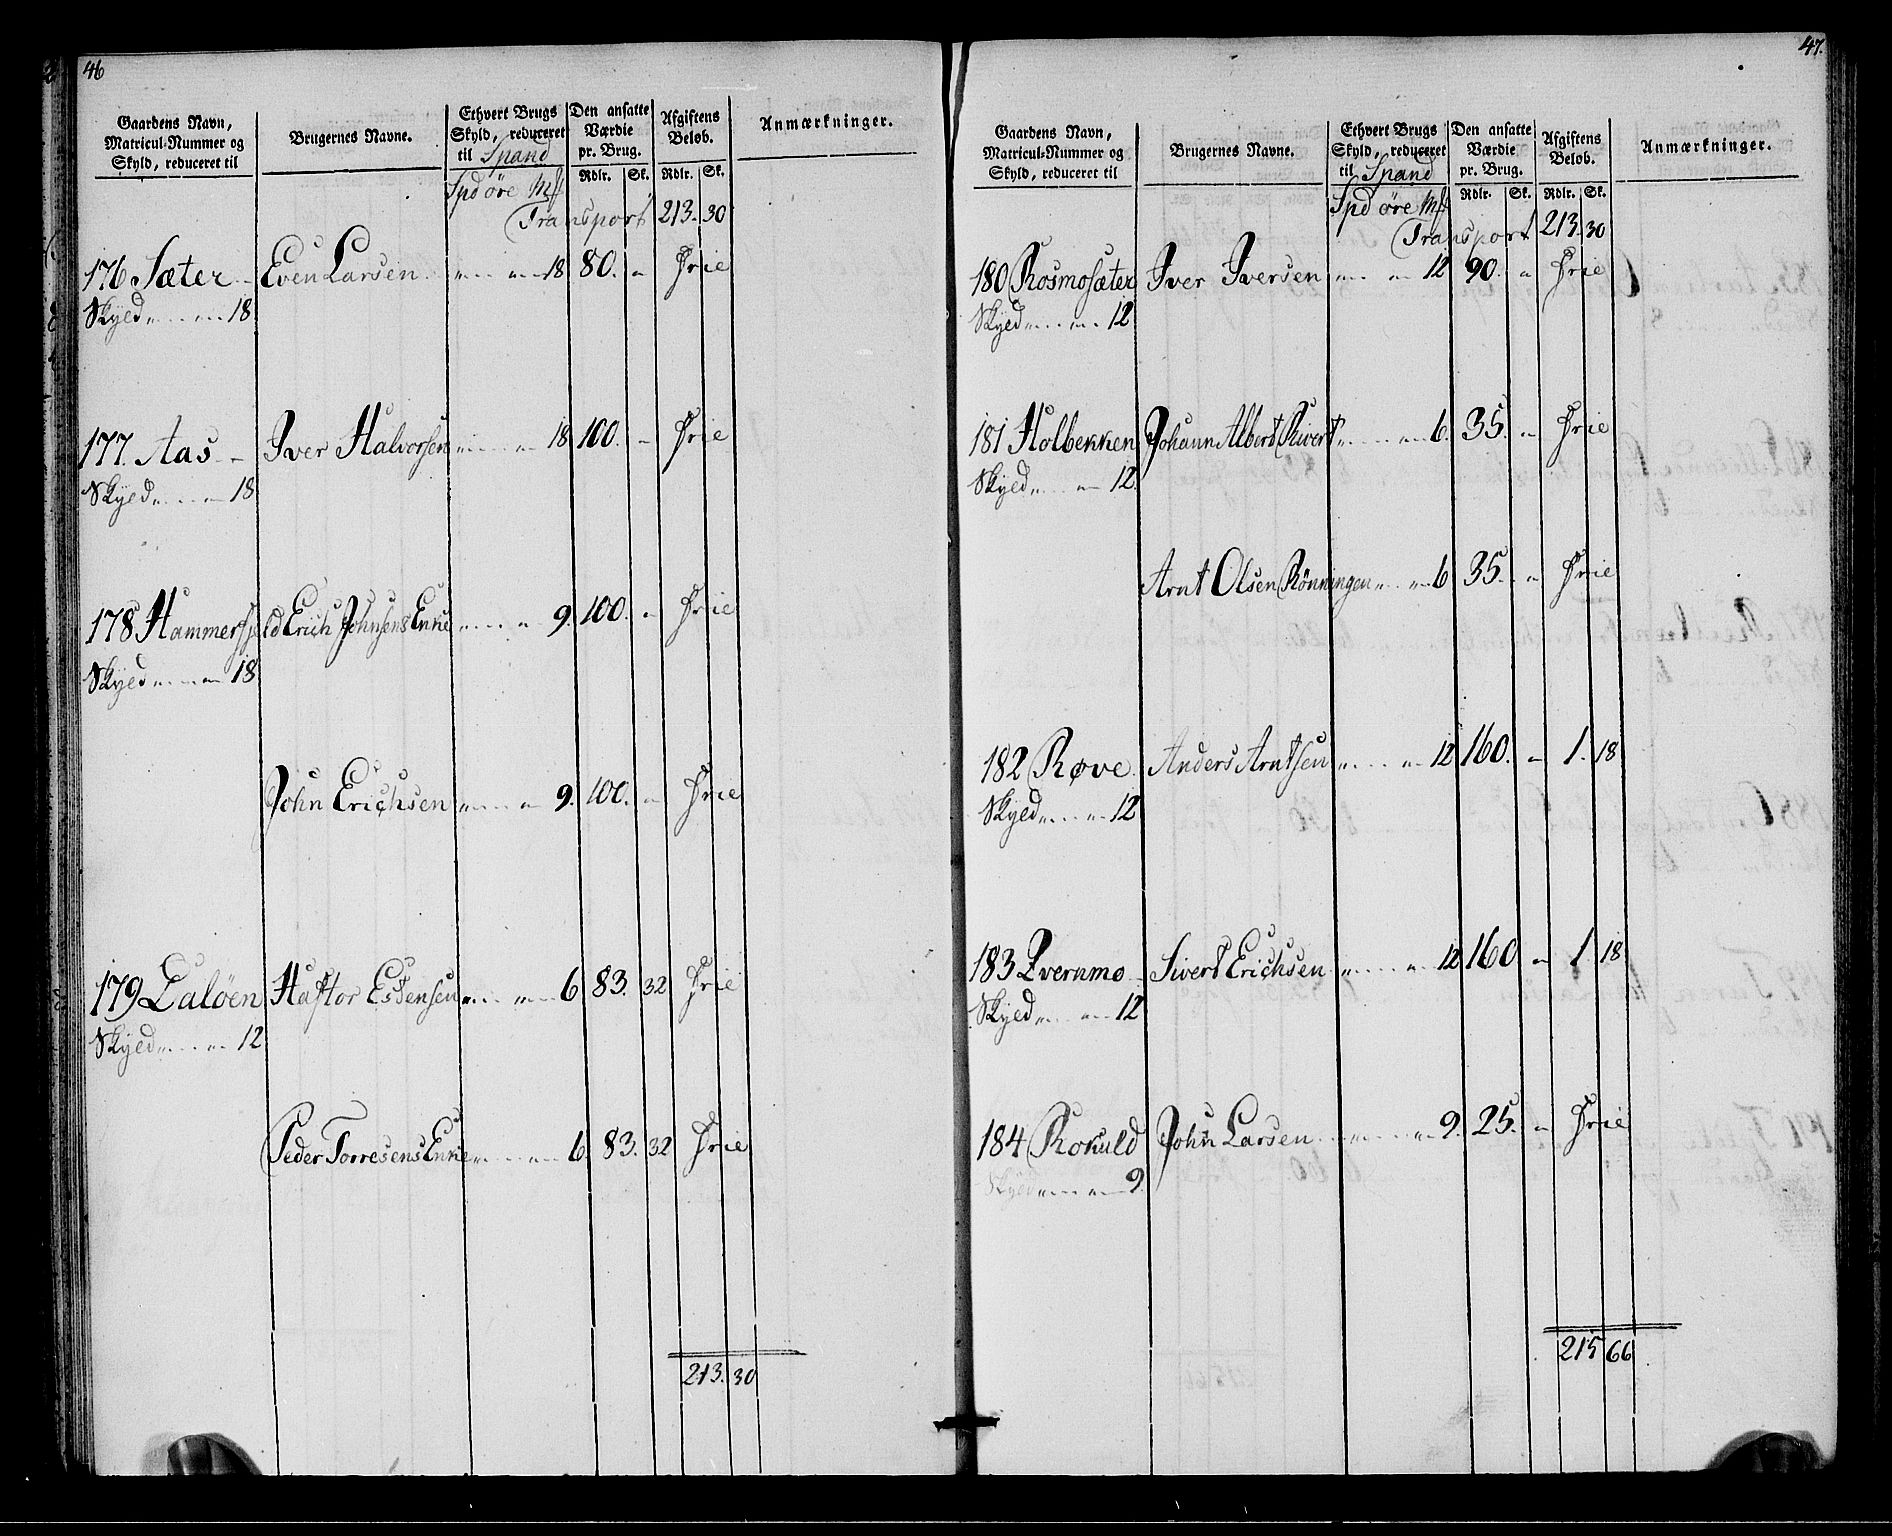 46
Gaardens Navn, Matricul-Nummer og Skyld, reduceret til
Brugernes Navne.
Ethvert Brugs Skyld, reduceret til Spand
Den ansatte Værdie pr. Brug.
Afgiftens Beløb.
Anmærkninger.
Rdlr. Sk. Rdlr. Sk.
Spd öre Mk
Transport 213. 30
176 Sæter - Even Larsen " " 18 80. " Frie
Skyld " " 18
177. Aas - Iver Halvorsen " " 18 100. " Frie
Skyld " " 18
178 Hammersfjeld Erich Johnsens Enke " " 9. 100. " Frie
Skyld " " 18
John Erichsen " " 9. 100. " Frie
179 Laløen Haftor Essensen " " 6 83. 32 Frie
Skyld " " 12
Peder Torresens Enke " " 6 83. 32 Frie
213. 30
47.
Gaardens Navn, Matricul-Nummer og Skyld, reduceret til
Brugernes Navne.
Ethvert Brugs Skyld, reduceret til Spand
Den ansatte Værdie pr. Brug.
Afgiftens Beløb.
Anmærkninger.
Rdlr. Sk. Rdlr. Sk.
Spd öre Mk
Transport 213 30
180 Rosmosæter Iver Iversen " " 12 90. " Frie
Skyld " " 12
181 Holbekken Johann Albert Sivert " " 6. 35. " Frie
Skyld " " 12
Arnt Olsen Rönningen " " 6 35. " Frie
182 Røve Anders Arntsen " " 12 160. " 1. 18
Skyld " " 12
183 Qvernmo - Sivert Erichsen " " 12 160 " 1 18
Skyld " " 12
184 Rokuld John Larsen " " 9. 25. " Frie
Skyld " " 9.
215 66